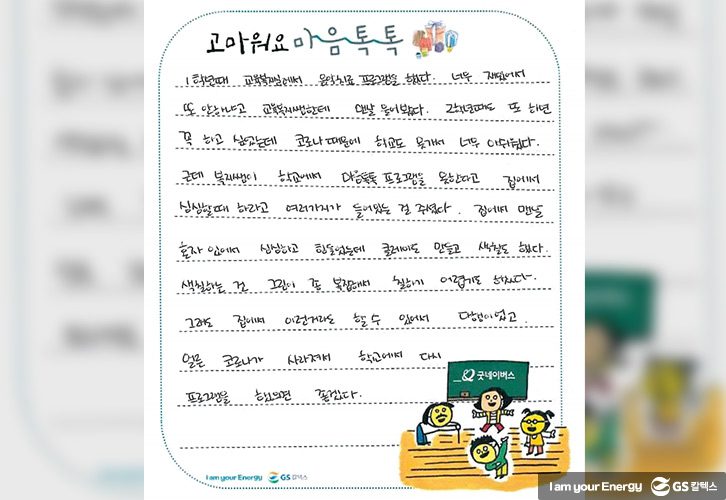 고마워요 마음톡톡
1학년때 교육복지실에서 음악치료 프로그램을 했었다. 너무 재밌어서
또 안하냐고 교육복지쌤한테 맨날 물어봤었다. 2학년때도 또 하면
꼭 하고 싶었는데 코로나 때문에 학교도 못가서 너무 아쉬웠다.
근데 복지쌤이 학교에서 마음톡톡 프로그램을 못한다고 집에서
심심할때 하라고 여러가지가 들어있는 걸 주셨다. 집에서 맨날
혼자 있어서 심심하고 힘들었는데 클레이도 만들고 색칠도 했다.
색칠하는 건 그림이 좀 복잡해서 칠하기 어렵기도 하였다.
그래도 집에서 이런거라도 할 수 있어서 다행이었고
얼른 코로나가 사라져서 학교에서 다시
프로그램을 했으면 좋겠다.
굿네이버스
I am your Energy GS칼텍스
I am your Energy GS칼텍스